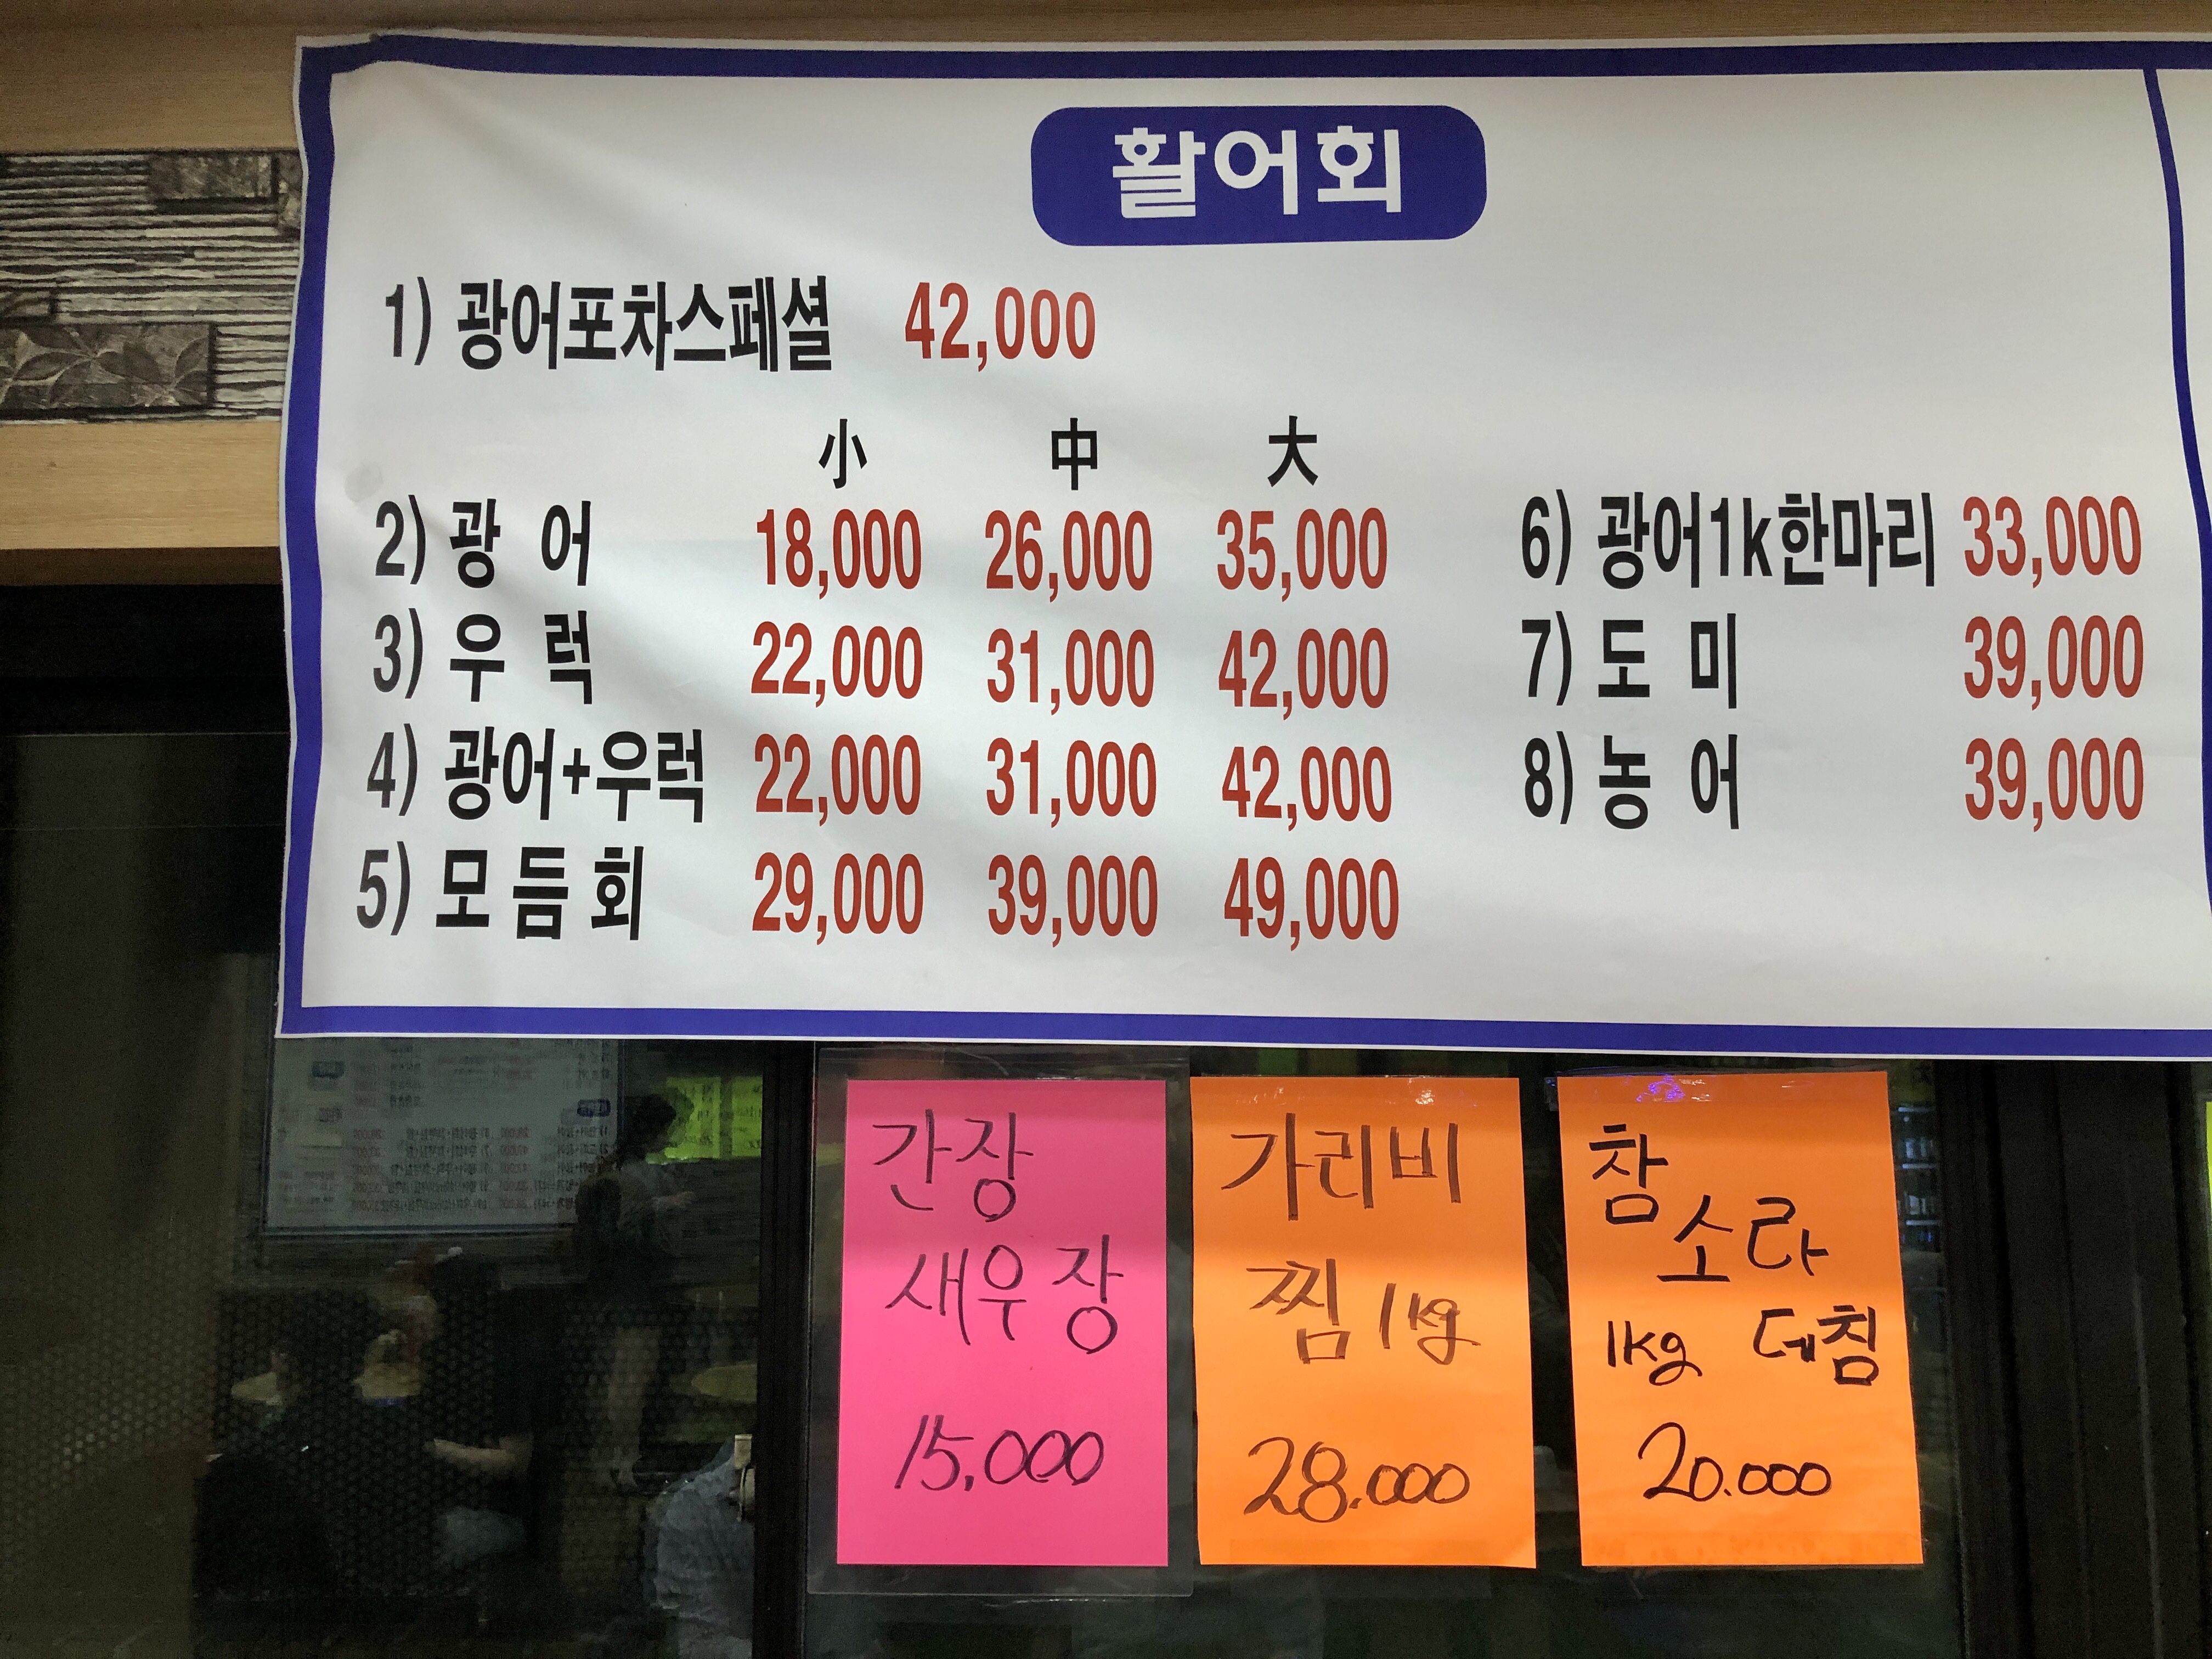 활어회
1) 광어포차스페셜 42,000
小 中 大
2) 광 어 18,000 26,000 35,000
3) 우 럭 22,000 31,000 42,000
4) 광어+우럭 22,000 31,000 42,000
5) 모 듬 회 29,000 39,000 49,000
6) 광어1k한마리 33,000
7) 도 미 39,000
8) 농 어 39,000
간장
새우장
15,000
가리비
찜 1kg
28.000
참
소라
1kg 데침
20.000